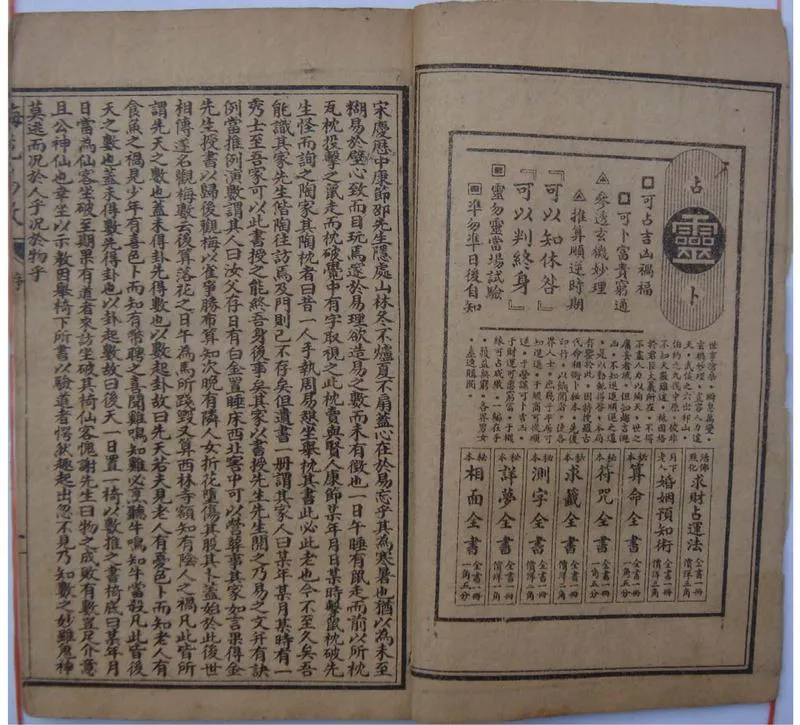 占靈卜
可占吉凶禍福
可卜富貴窮通
參透玄機妙理
推算順逆時期
『可以知休咎』
『可以判終身』
靈勿靈當場試驗
準勿準日後自知
世事滄桑，瞬息萬變，
玄機妙理，豈容人力違
天，武侯之六出祁山，
伯約之九伐中原，彼非
不知天數難違，祇因格
於君臣大義所在，不得
不盡人力以
但知趨吉避
凶，不知
是以
有鑒於此，因特搜羅古
代命相術卜秘本，先後
印行，以餉閱者，使各
界人士，庶幾乎居可
知進退，于婚商可從順
逆，于營謀可卜吉凶，
于財運可 窮富，于姻
緣可占成敗，一編在手
，獲益無窮，各界男女
，盍速購閱。
活佛點化 求財占運法 全書一冊 價洋三角
月下老人 婚姻預知術 全書一冊 價洋三角
秘本 算命全書 全書一冊 一角五分
秘本 符咒全書 全書一冊 一角五分
秘本 求籤全書 全書一冊 價洋二角
秘本 測字全書 全書一冊 價洋一角
秘本 詳夢全書 全書一冊 價洋一角
秘本 相面全書 全書一冊 一角五分
宋慶歷中康節邵先生隱處山林冬不爐夏不扇蓋心在於易忘乎其為寒暑也猶以為未至
糊易於壁心致而目玩焉邃於易理欲造易之數而未有徵也一日午睡有鼠走而前以所枕
瓦枕投擊之鼠走而枕破覺中有字取視之此枕賣與賢人康節某年月日某時擊鼠枕破先
生怪而詢之陶家其陶枕者曰昔一人手執周易憩坐舉枕其書此必此老也今不至久矣吾
能識其家先生偕陶往訪焉及門則已不存矣但遺書一冊謂其家人曰某年某月某時有一
秀士至吾家可以此書授之能終吾身後事矣其家以書授先生先生閱之乃易之文并有訣
例當推例演數謂其人曰汝父存日有白金置睡床西北窖中可以營葬事其家如言果得金
先生授書以歸後觀梅以雀爭勝布算知次晚有隣人女折花墮傷其股其卜蓋始於此後世
相傳遂名觀梅數云後算落花之日午為馬所踐毀又算西林寺額知有陰人之禍凡此皆所
謂先天之數也蓋未得卦先得數也以數起卦故曰先天若夫見老人有憂色卜而知老人有
食魚之禍見少年有喜色卜而知有幣聘之喜聞雞鳴知雞必烹聽牛鳴知牛當殺凡此皆後
天之數也蓋未得數先得卦也以卦起數故曰後天一日置一椅以數推之書椅底曰某年月
日當為仙客坐破至期果有道者來訪坐破其椅仙客愧謝先生曰物之成敗有數豈足介意
且公神仙也幸坐以示教因舉椅下所書以驗道者愕然趨起出忽不見乃知數之妙雖鬼神
莫逃而況於人乎況於物乎